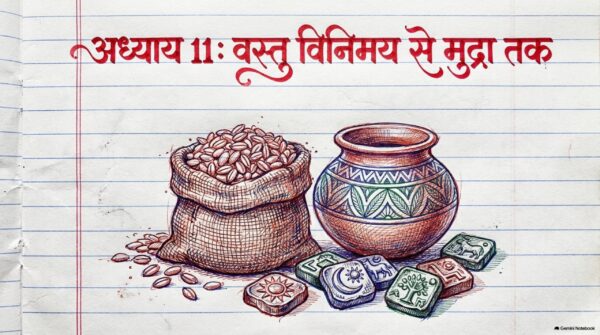 अध्याय 11: वस्तु विनिमय से मुद्रा तक
Gemini Notebook